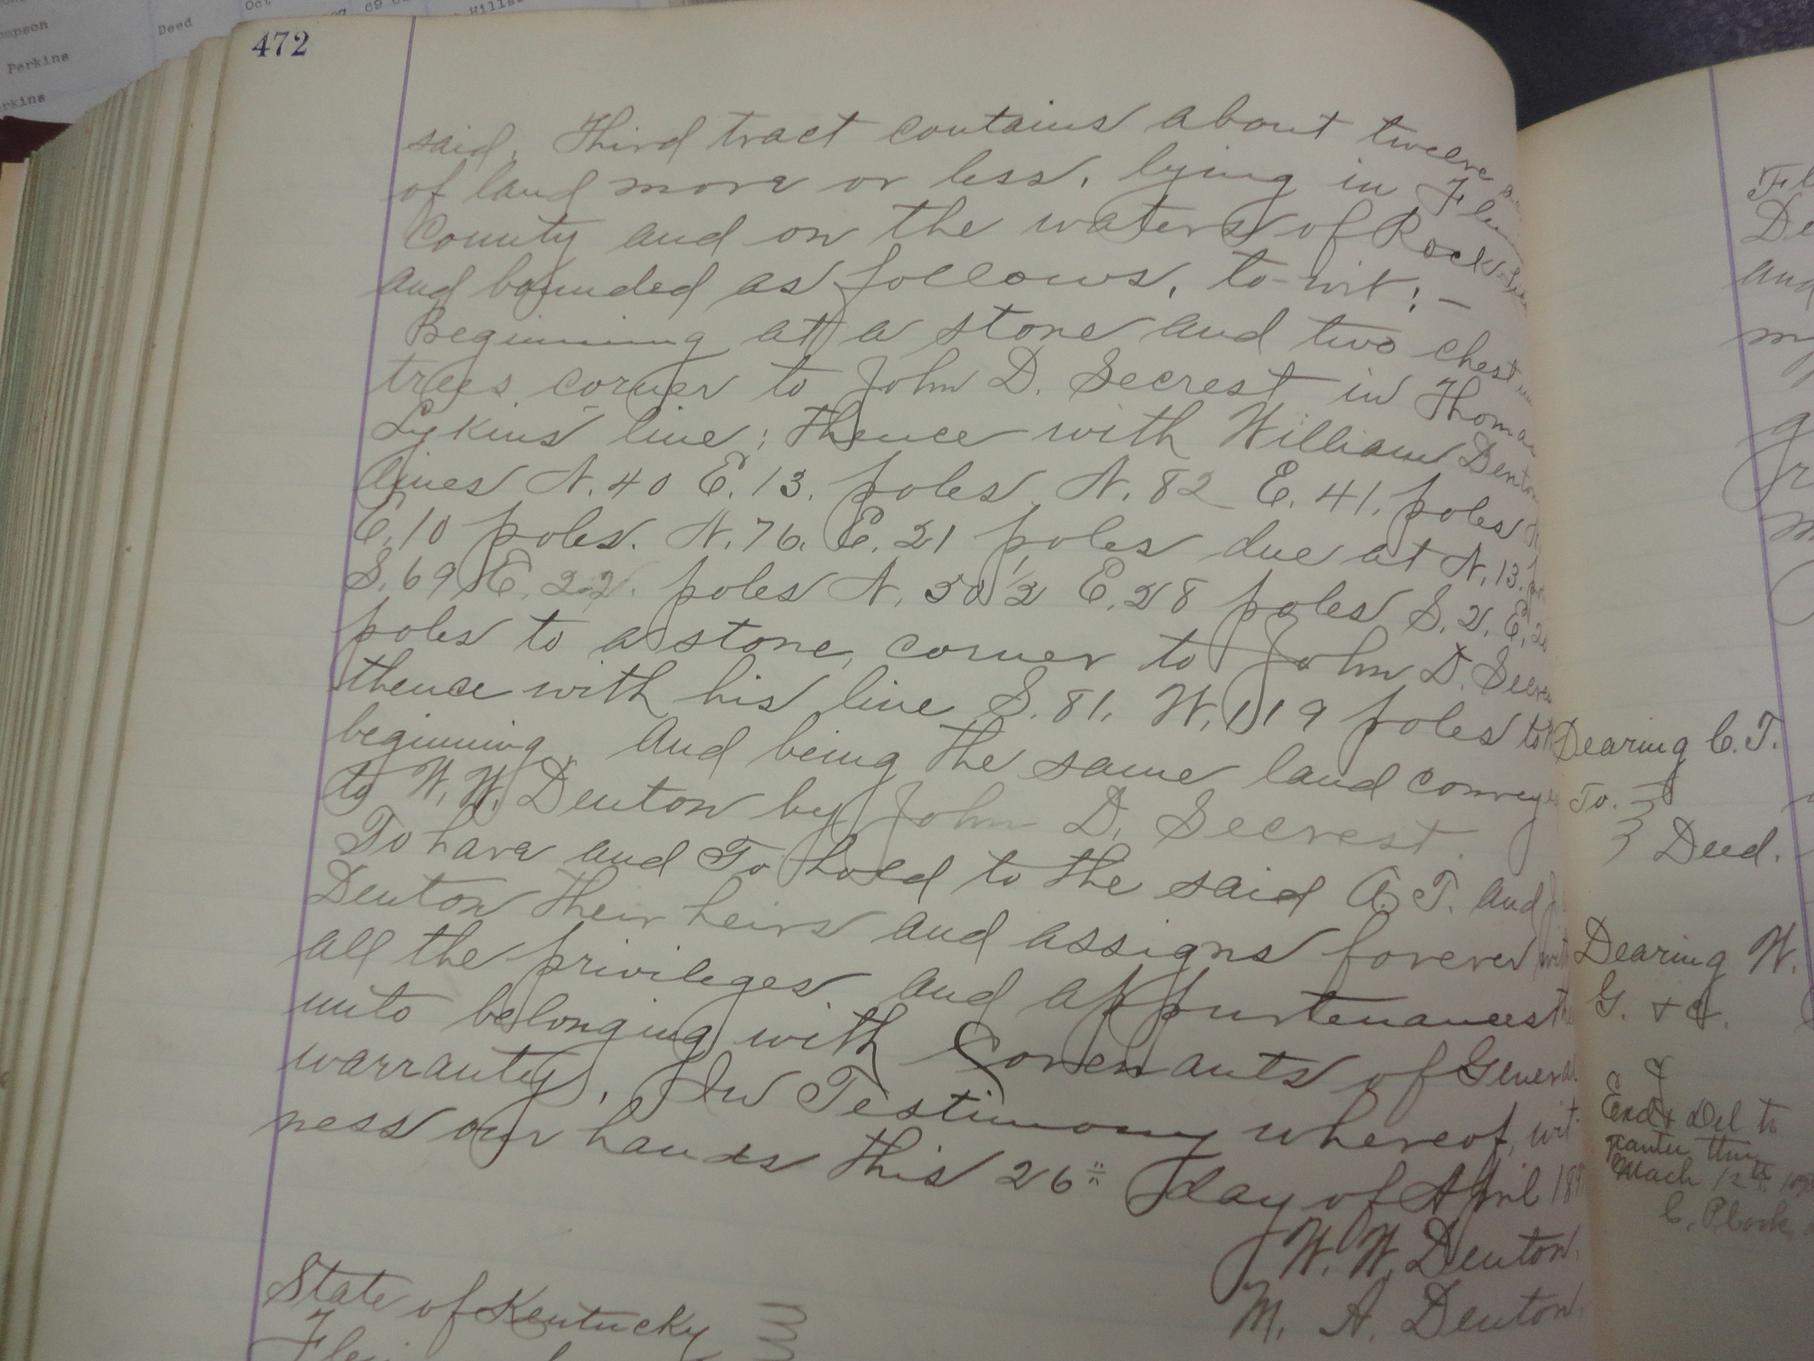 mpson
Deed
Oct
Perkins
rkins
472
said. Third tract contains about twelve
of land more or less, lying in Flem
County and on the waters of Rock
and bounded as follows, to-wit:-
Beginning at a stone and two chest
trees corner to John D. Secrest in Thomas
Lykins' line; thence with William Denton
lines N. 40 E. 13. poles N. 82 E. 41. poles
E. 10 poles. N. 76. E. 21 poles due at N. 13.
S. 69 E. 22. poles N. 30 1/2 E. 28 poles S. 2. E.
poles to a stone, corner to John D. Secres
thence with his line S. 81. W. 119 poles to
beginning, And being the same land convey
to W. W. Denton by John D. Secrest.
To have and To hold to the said A. T. and
Denton their heirs and assigns forever
all the privileges and appurtenances
unto belonging with Covenants of General
warranty, In Testimony whereof, wit
ness our hands this 26" day of April 18
W. W. Denton.
M. A. Denton.
State of Kentucky
Fl
De
and
my
Dearing C. T.
To.
Deed.
Dearing W.
G. &
Exd & Del to
Mach 12th